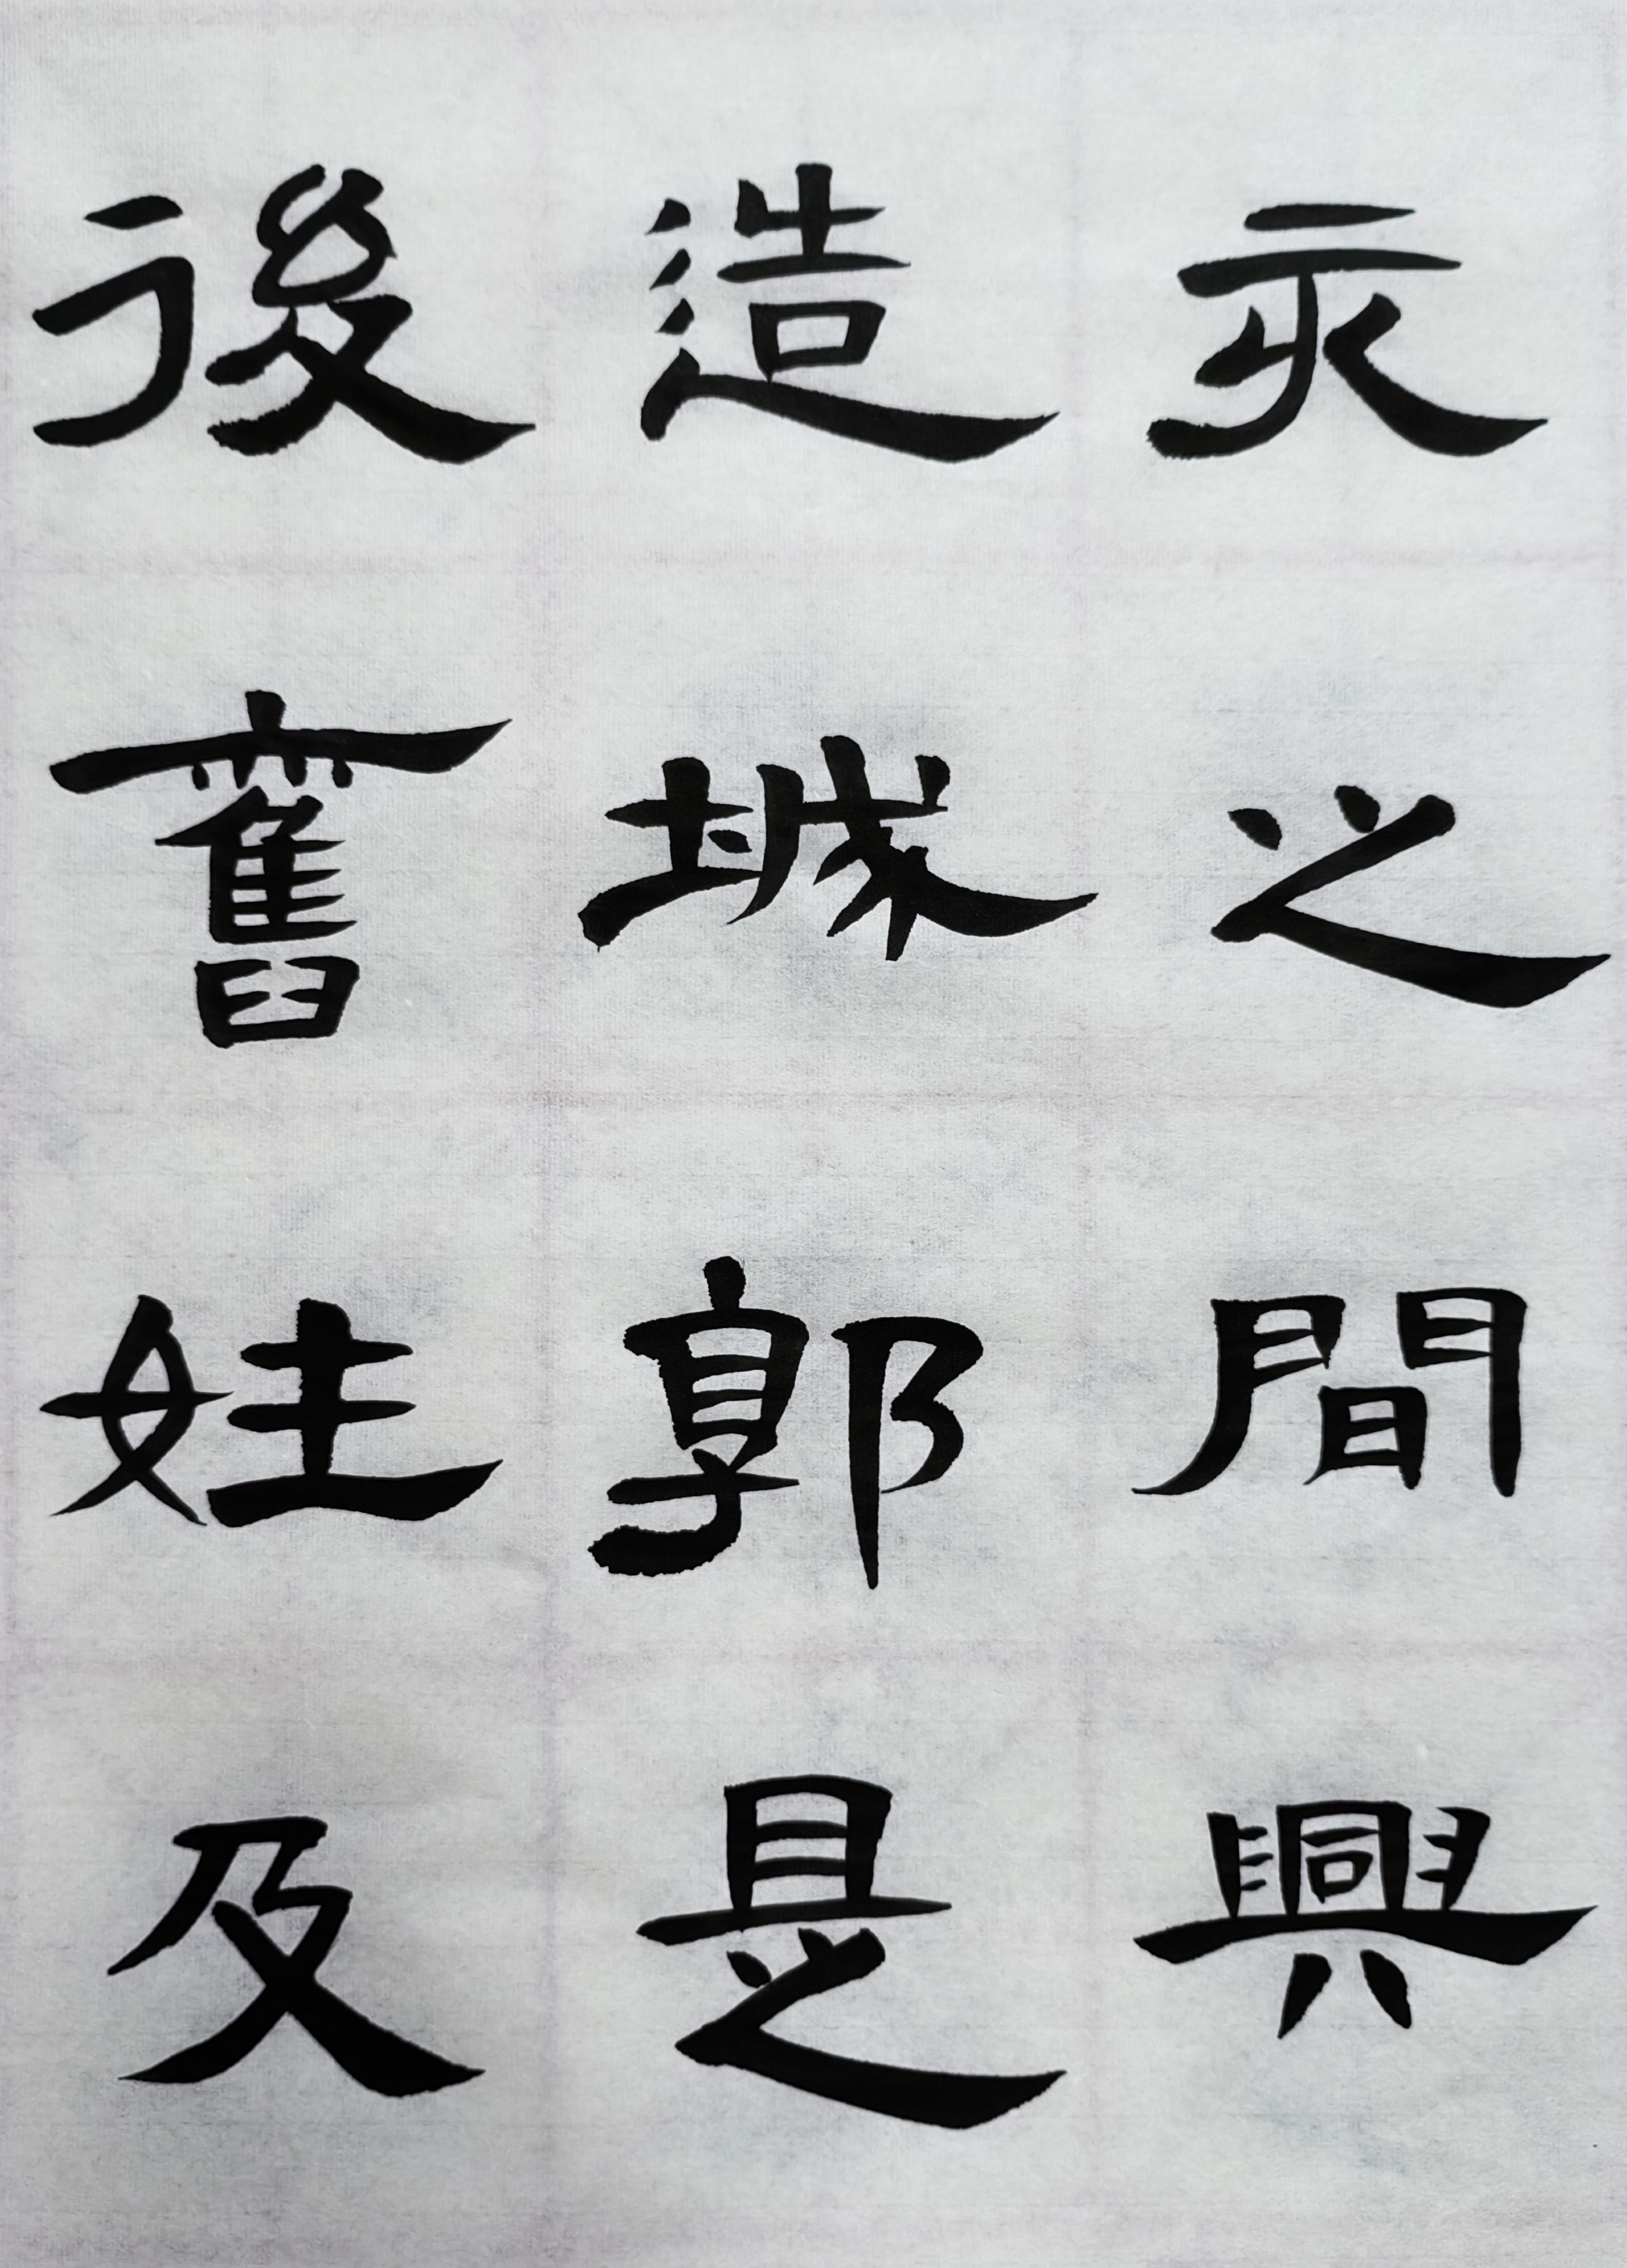 亥之間興
造城郭是
後舊姓及